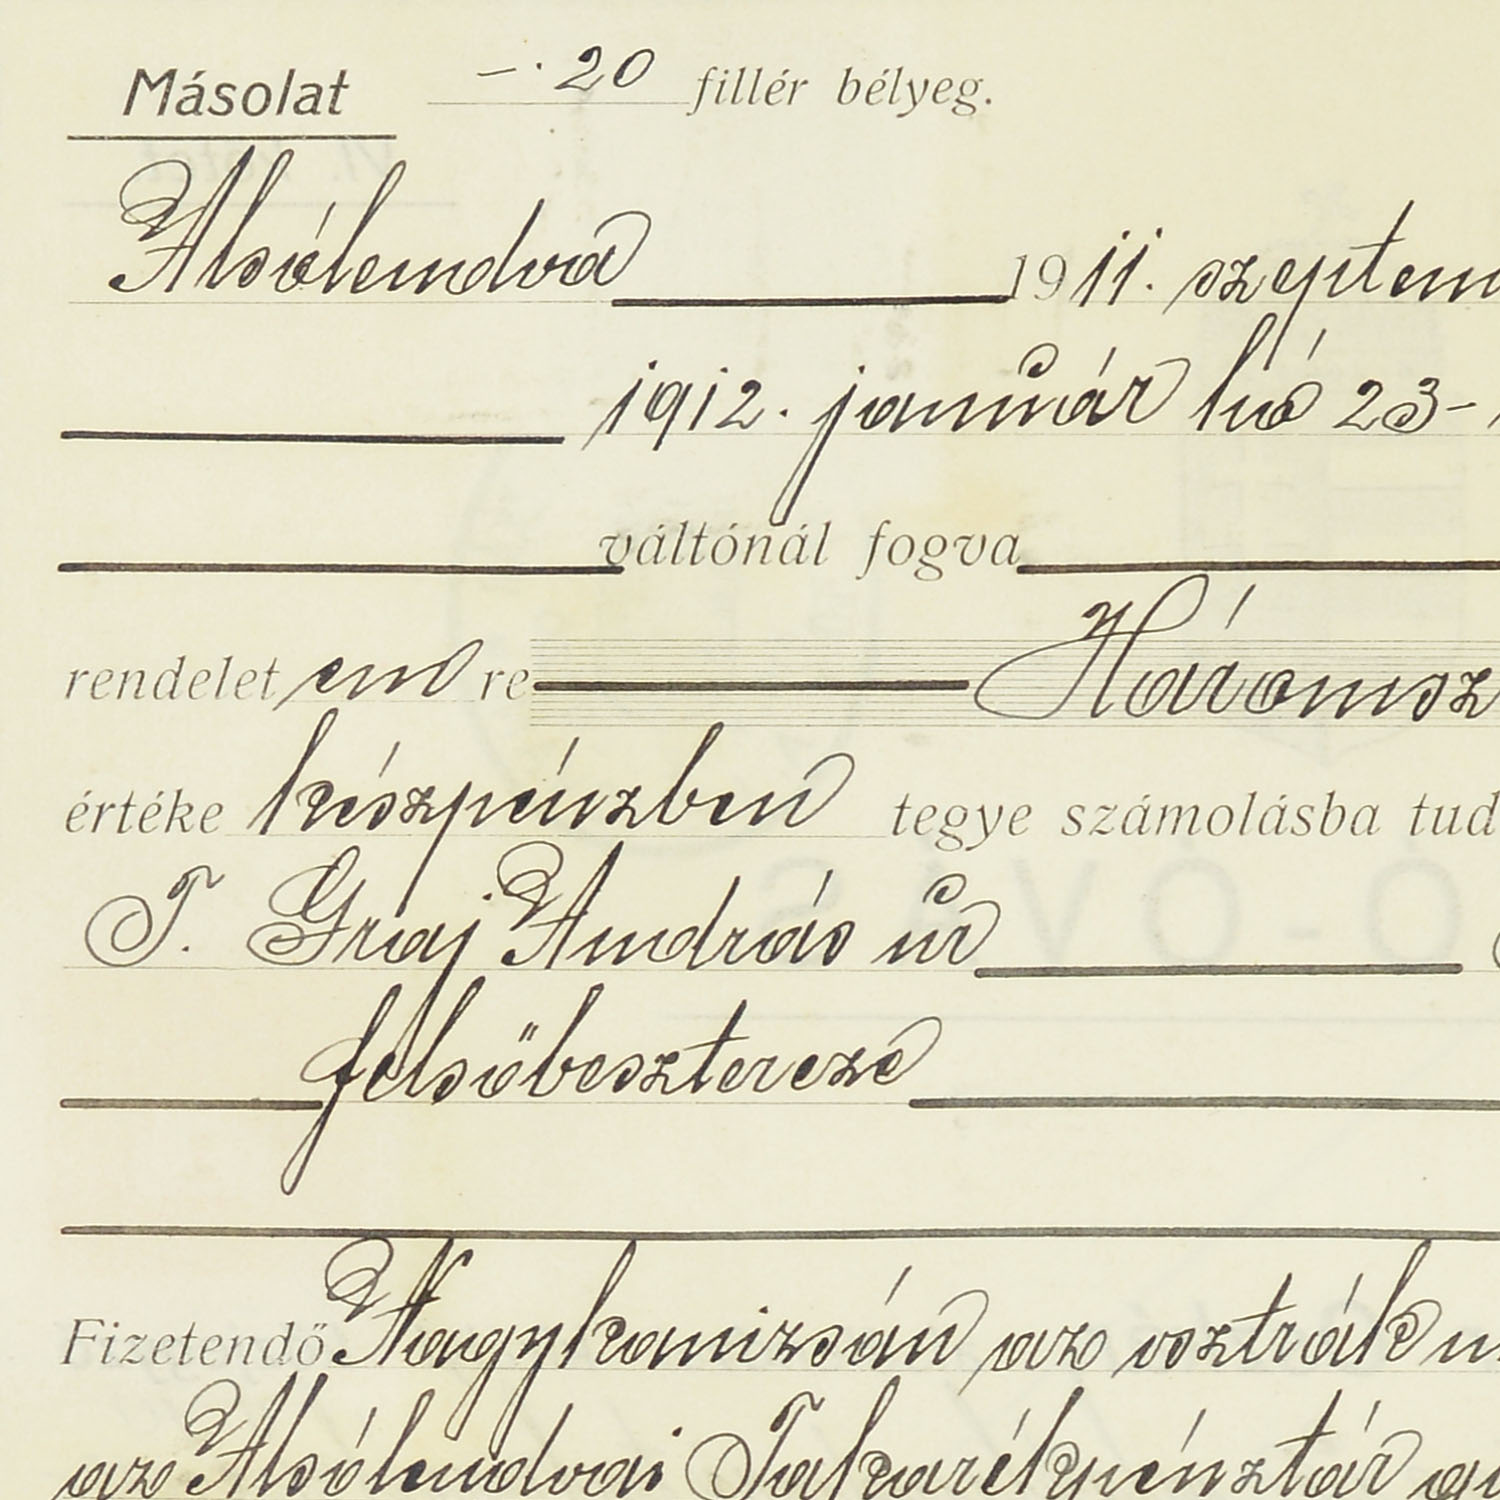 Másolat –·20 fillér bélyeg.
Alsólendva 1911. szeptem
1912. január hó 23-
váltónál fogva
rendelet em re Háromsz
értéke készpénzben tegye számolásba tud
T. Graj András úr
felsőbeszterce
Fizetendő Nagykanizsán az osztrák
az Alsólendvai Takarékpénztár